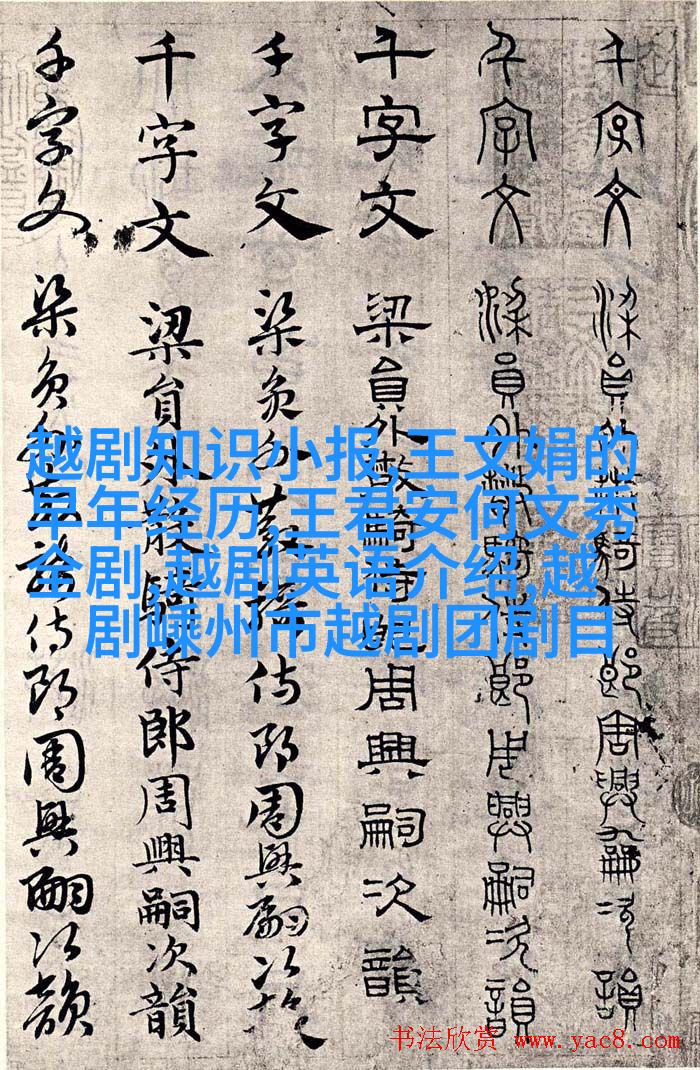 越剧知识小报,王文娟的
早年经历,王君安何文秀
全剧,越剧英语介绍,越
剧嵊州市越剧团剧目
千字文 梁員外散騎侍郎周興嗣次韻
千字文 梁員外散騎侍郎周興嗣次韻
千字文 梁員外散騎侍郎周興嗣次韻
千字文 梁員外散騎侍郎周興嗣次韻
千字文 梁員外散騎侍郎周興嗣次韻
千字文 梁員外散騎侍郎周興嗣次韻
书法欣赏 www.yac8.com